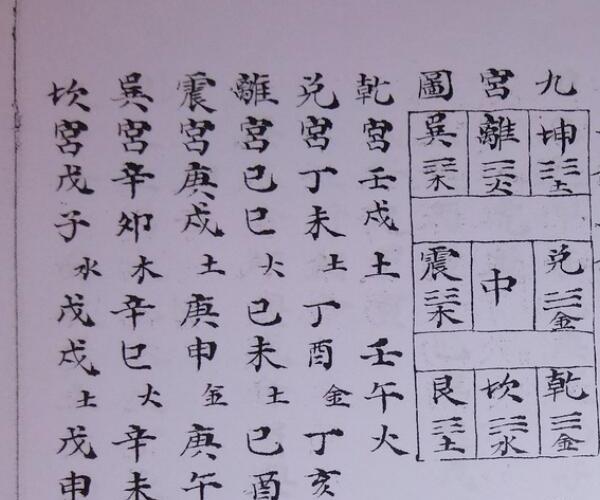 九宮圖
坤土
離火
巽木
兌金
中
震木
乾金
坎水
艮土
乾宮壬戌土 壬午火
兌宮丁未土丁酉金丁亥
離宮己巳火己未土己酉
震宮庚戌土庚申金庚午
巽宮辛卯木辛巳火辛未
坎宮戊子水戊戌土戊申